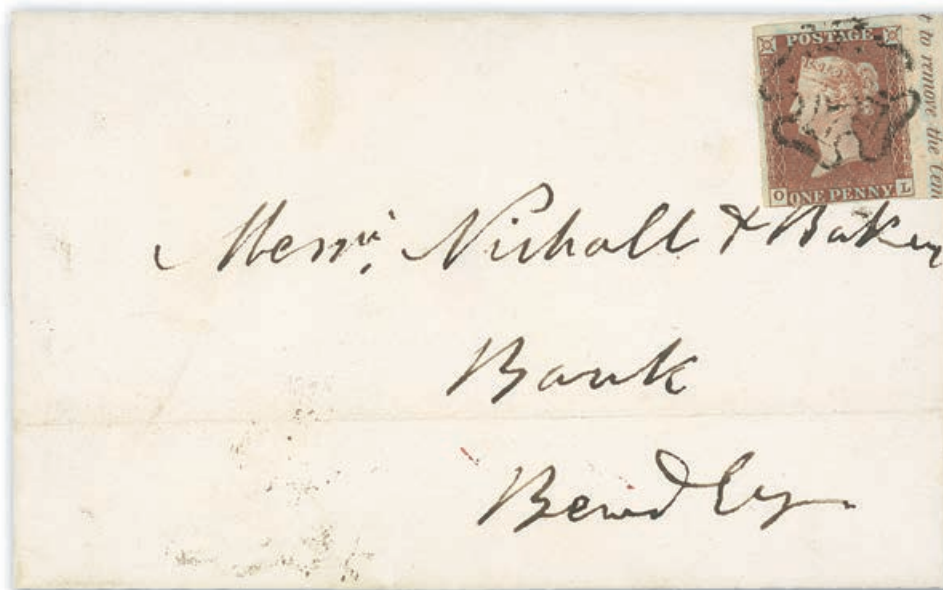 POSTAGE
O ONE PENNY L
to remove the
Messrs. Nicholl & Baker
Bank
Bewdley